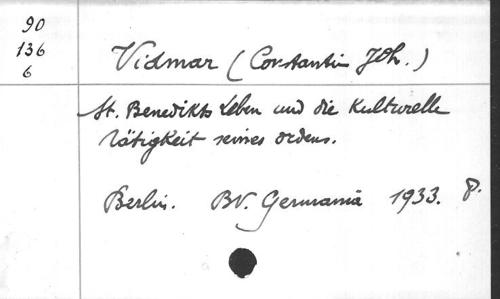 90
136
6
Vidmar (Constantin Joh.)
St. Benedikts Leben und die Kulturelle
Tätigkeit seines Ordens.
Berlin. BV. Germania 1933. 8.